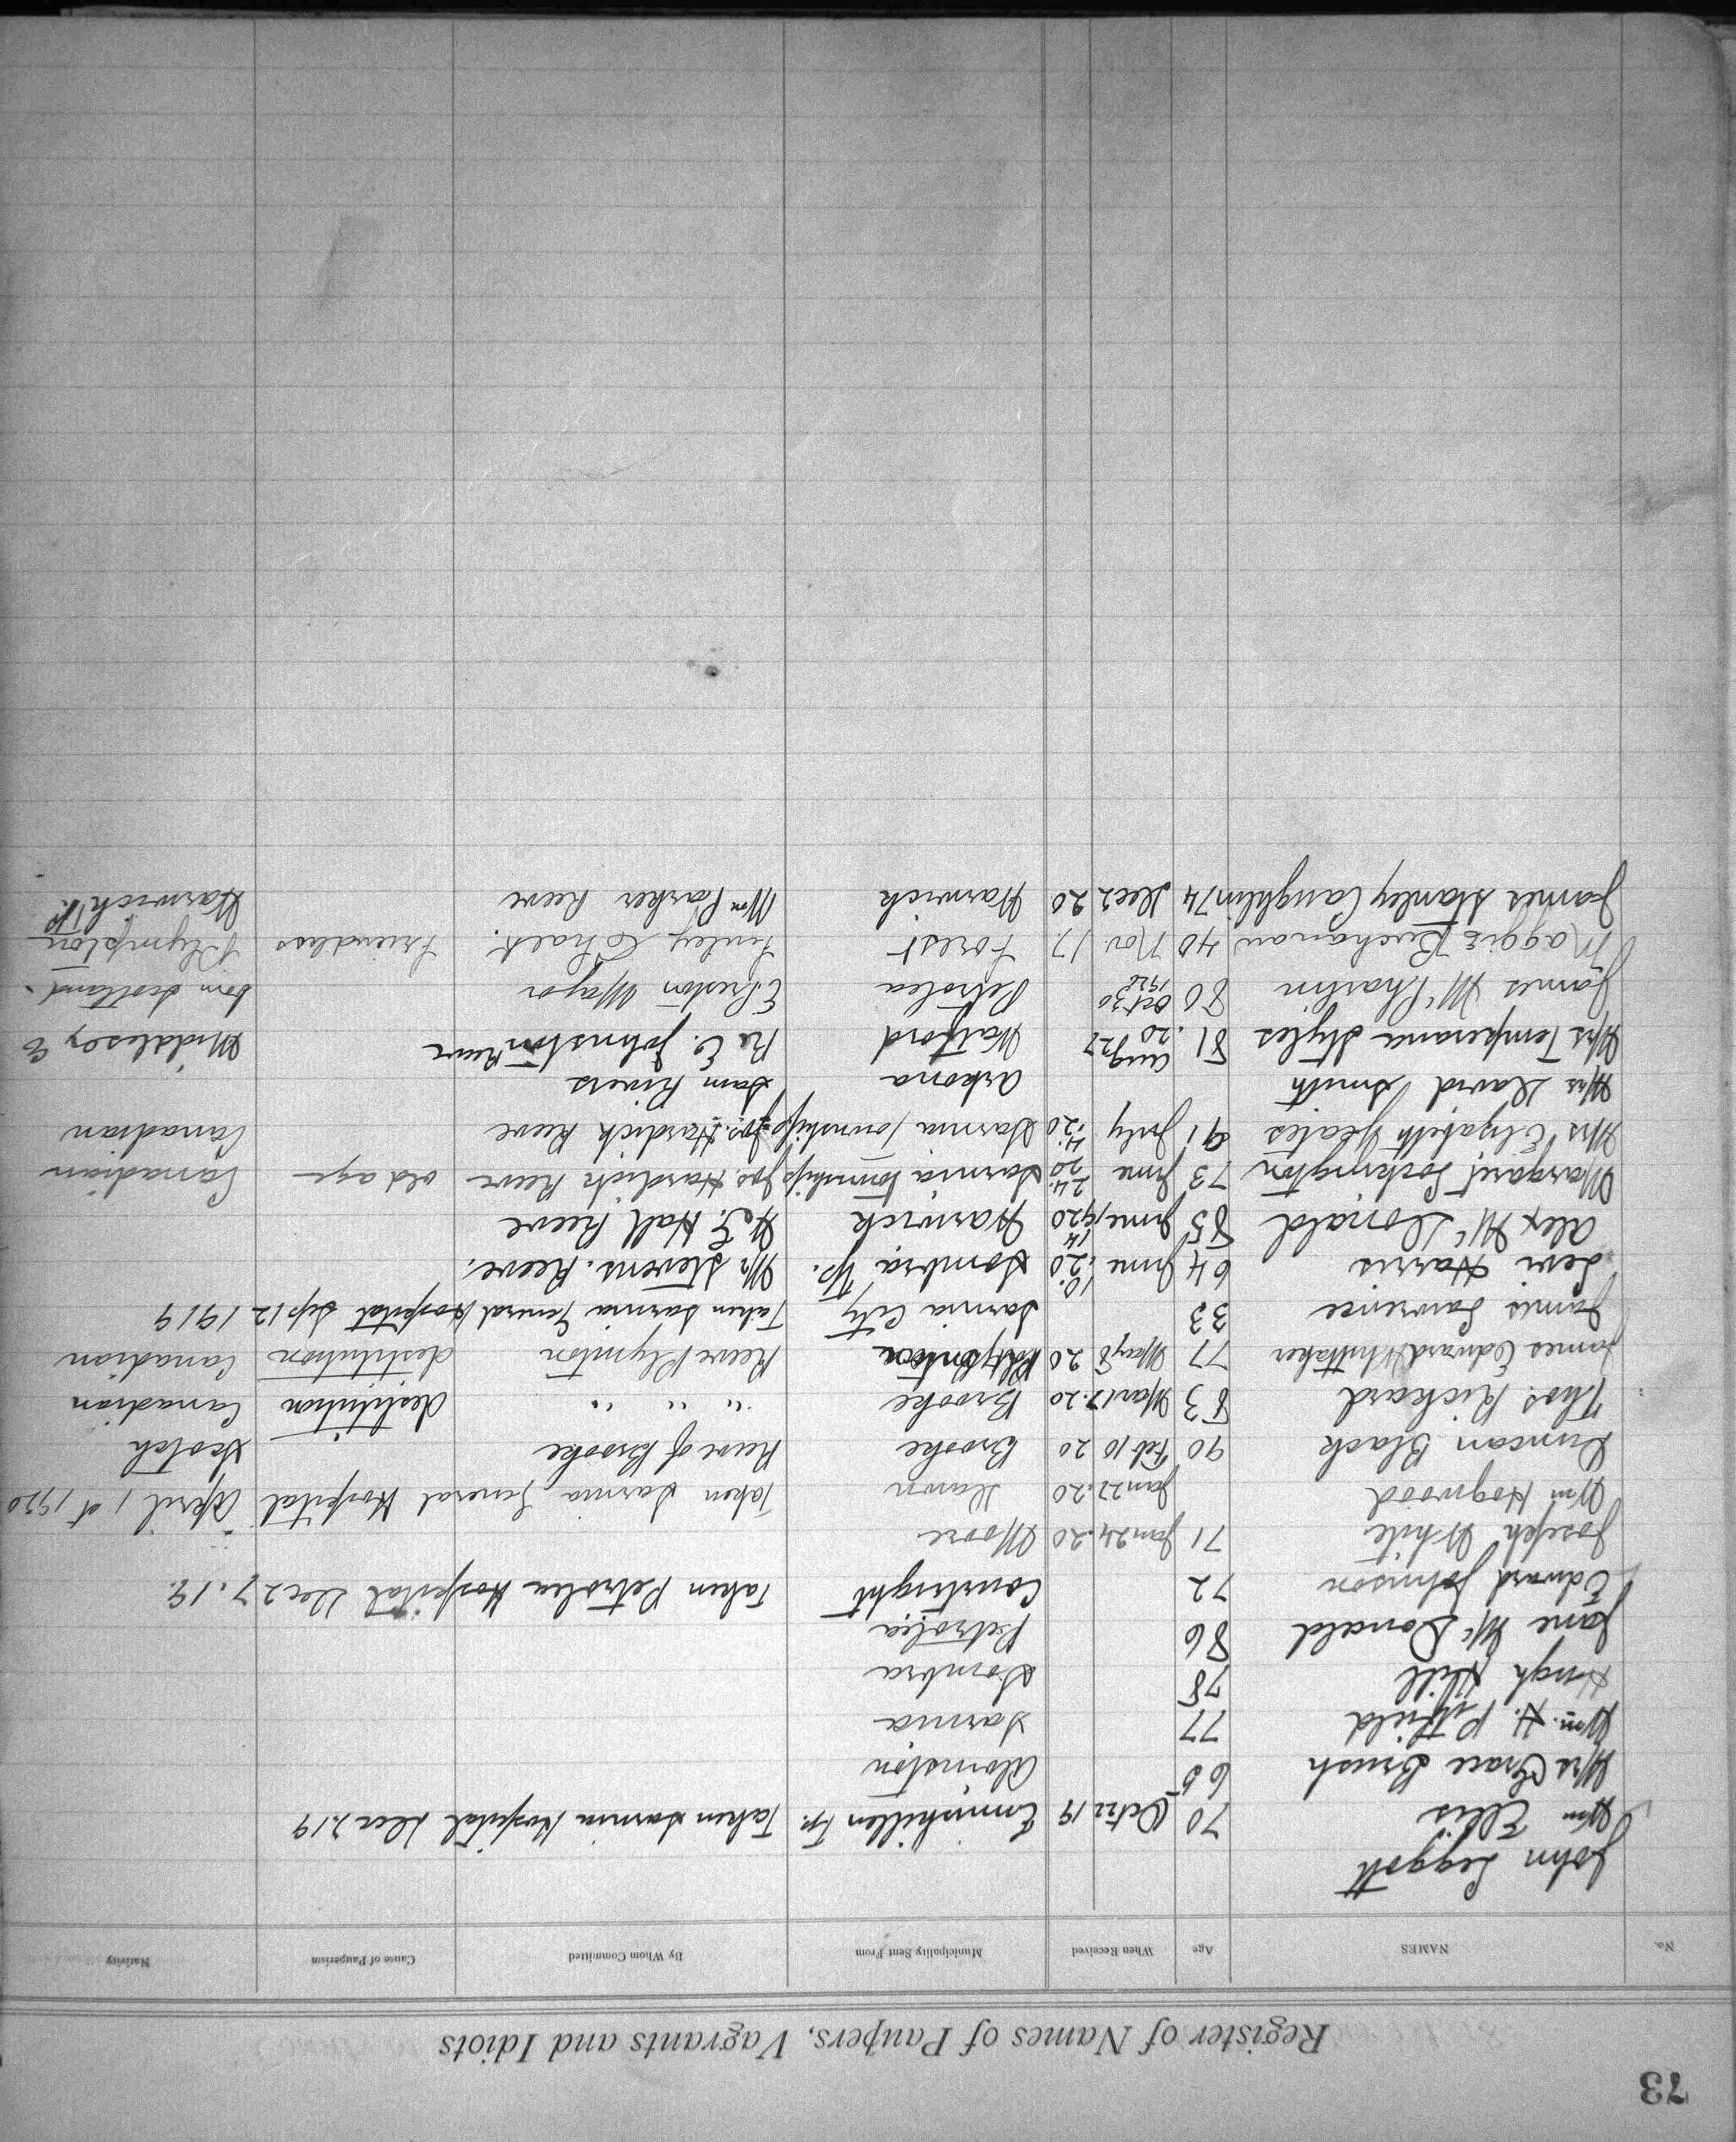 73
Register of Names of Paupers, Vagrants and Idiots
No. NAMES Age When Received Municipality Sent From By Whom Committed Cause of Pauperism Nativity
John Leggott
Wm Ellis 70 Oct 22 19 Enniskillen Tp. Taken Sarnia Hospital Dec 2 19
Mrs Grace Brush 65 Alvinston
Wm. H. Pitfield 77 Sarnia
Hugh Hill 78 Sombra
Jane McDonald 86 Petrolea
Edward Johnson 72 Courtright Taken Petrolea Hospital Dec 27. 19.
Joseph White 71 Jan 24. 20 Moore
Wm Hogwood Jan 27. 20 Dawn Taken Sarnia General Hospital April 1 st 1920
Duncan Black 90 Feb 10 20 Brooke Reeve of Brooke Scotch
Thos. Rickard 83 Mar 17. 20 Brooke " " " destitution Canadian
James Edward Whittaker 77 May 8 20 Plympton Reeve Plymton destitution Canadian
James Lawrence 33 Sarnia City Taken Sarnia General Hospital Sep 12 1919
Levi Harris 64 June 10. 20 Sombra Tp. Mr Stevens. Reeve.
Alex McDonald 85 June 14 1920 Warwick Hall Reeve
Margaret Lockington 73 June 24. 20 Sarnia Township Jos. Hardick Reeve old age Canadian
Mrs Elizabeth Yeates 91 July 4. 20 Sarnia Township Jos. Hardick Reeve Canadian
Mrs David Smith Arkona Sam Rivers
Mrs Temperance Styles 81 Aug 27 . 20 Watford R. E. Johnston Reeve Middlesex
James McPharlin 80 Oct 30 1920 Petrolea E Preston Mayor born Scotland.
Maggie Buchanan 40 Nov. 17. Forest Finley friendless Plympton Tp.
James Stanley Caughlin 74 Dec 2 20 Warwick Wm Parker Reeve Warwick